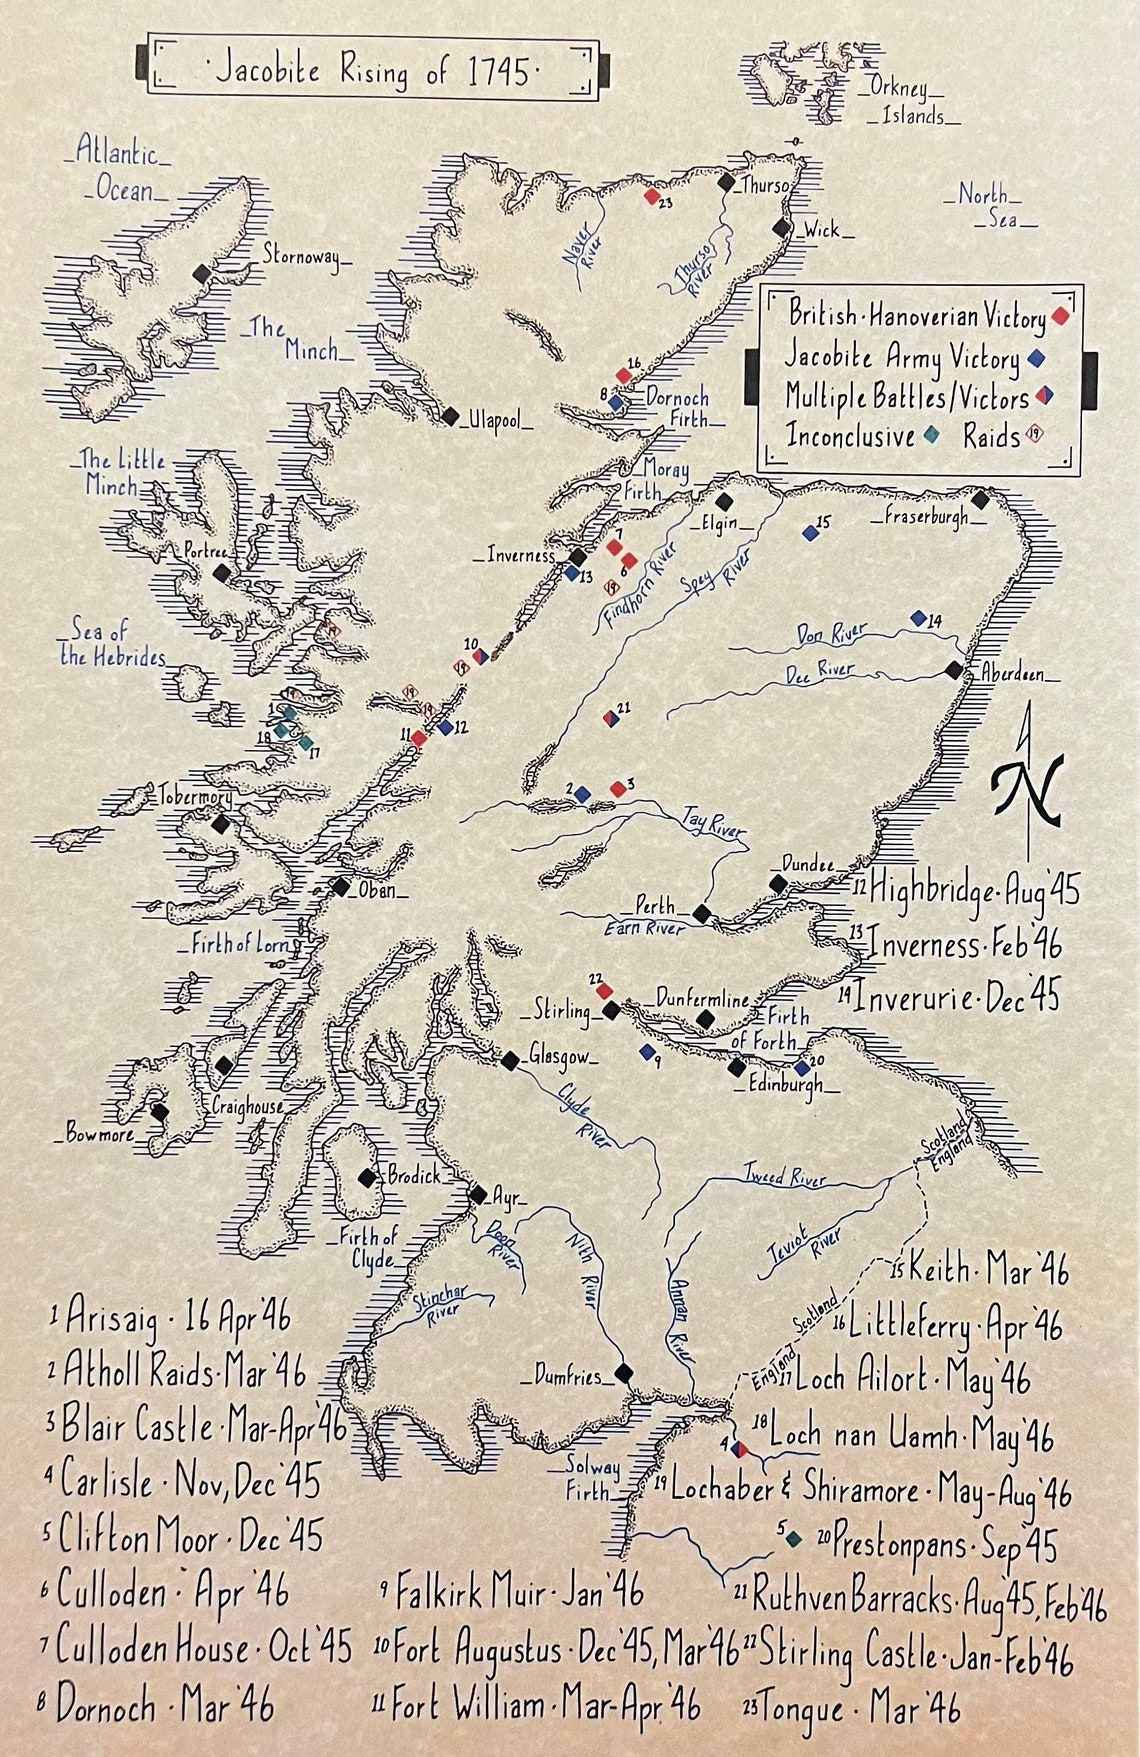 ·Jacobite Rising of 1745·
Orkney
Islands
Atlantic
Ocean
North
Sea
Thurso
Wick
23
Naver
River
Thurso
River
Stornoway
The
Minch
British·Hanoverian Victory
Jacobite Army Victory
Multiple Battles/Victors
Inconclusive
Raids 19
16
8
Dornoch
Firth
Ulapool
The Little
Minch
Moray
Firth
Elgin
Fraserburgh
15
Portree
Inverness
7
6
13
19
Findhorn River
Spey River
Sea of
the Hebrides
19
14
Don River
Dee River
Aberdeen
10
19
19
19
19
1
18
17
11
12
21
N
Tobermory
2
3
Tay River
Oban
Dundee
Perth
Earn River
Firth of Lorn
12 Highbridge·Aug'45
13 Inverness·Feb'46
14 Inverurie·Dec'45
22
Stirling
Dunfermline
Firth
of Forth
9
20
Glasgow
Edinburgh
Clyde
River
Craighouse
Bowmore
Scotland
England
Brodick
Ayr
Tweed River
Teviot
River
Firth of
Clyde
Doon
River
Nith River
Annan River
Stinchar
River
Scotland
England
Dumfries
Solway
Firth
4
5
1 Arisaig · 16 Apr'46
2 Atholl Raids·Mar'46
3 Blair Castle·Mar-Apr'46
4 Carlisle · Nov, Dec'45
5 Clifton Moor · Dec'45
6 Culloden · Apr '46
7 Culloden House · Oct'45
8 Dornoch · Mar '46
9 Falkirk Muir · Jan '46
10 Fort Augustus · Dec'45, Mar'46
11 Fort William · Mar-Apr '46
15 Keith · Mar '46
16 Littleferry · Apr '46
17 Loch Ailort · May '46
18 Loch nan Uamh · May '46
19 Lochaber & Shiramore · May-Aug '46
20 Prestonpans · Sep '45
21 Ruthven Barracks · Aug'45, Feb'46
22 Stirling Castle · Jan-Feb '46
23 Tongue · Mar '46